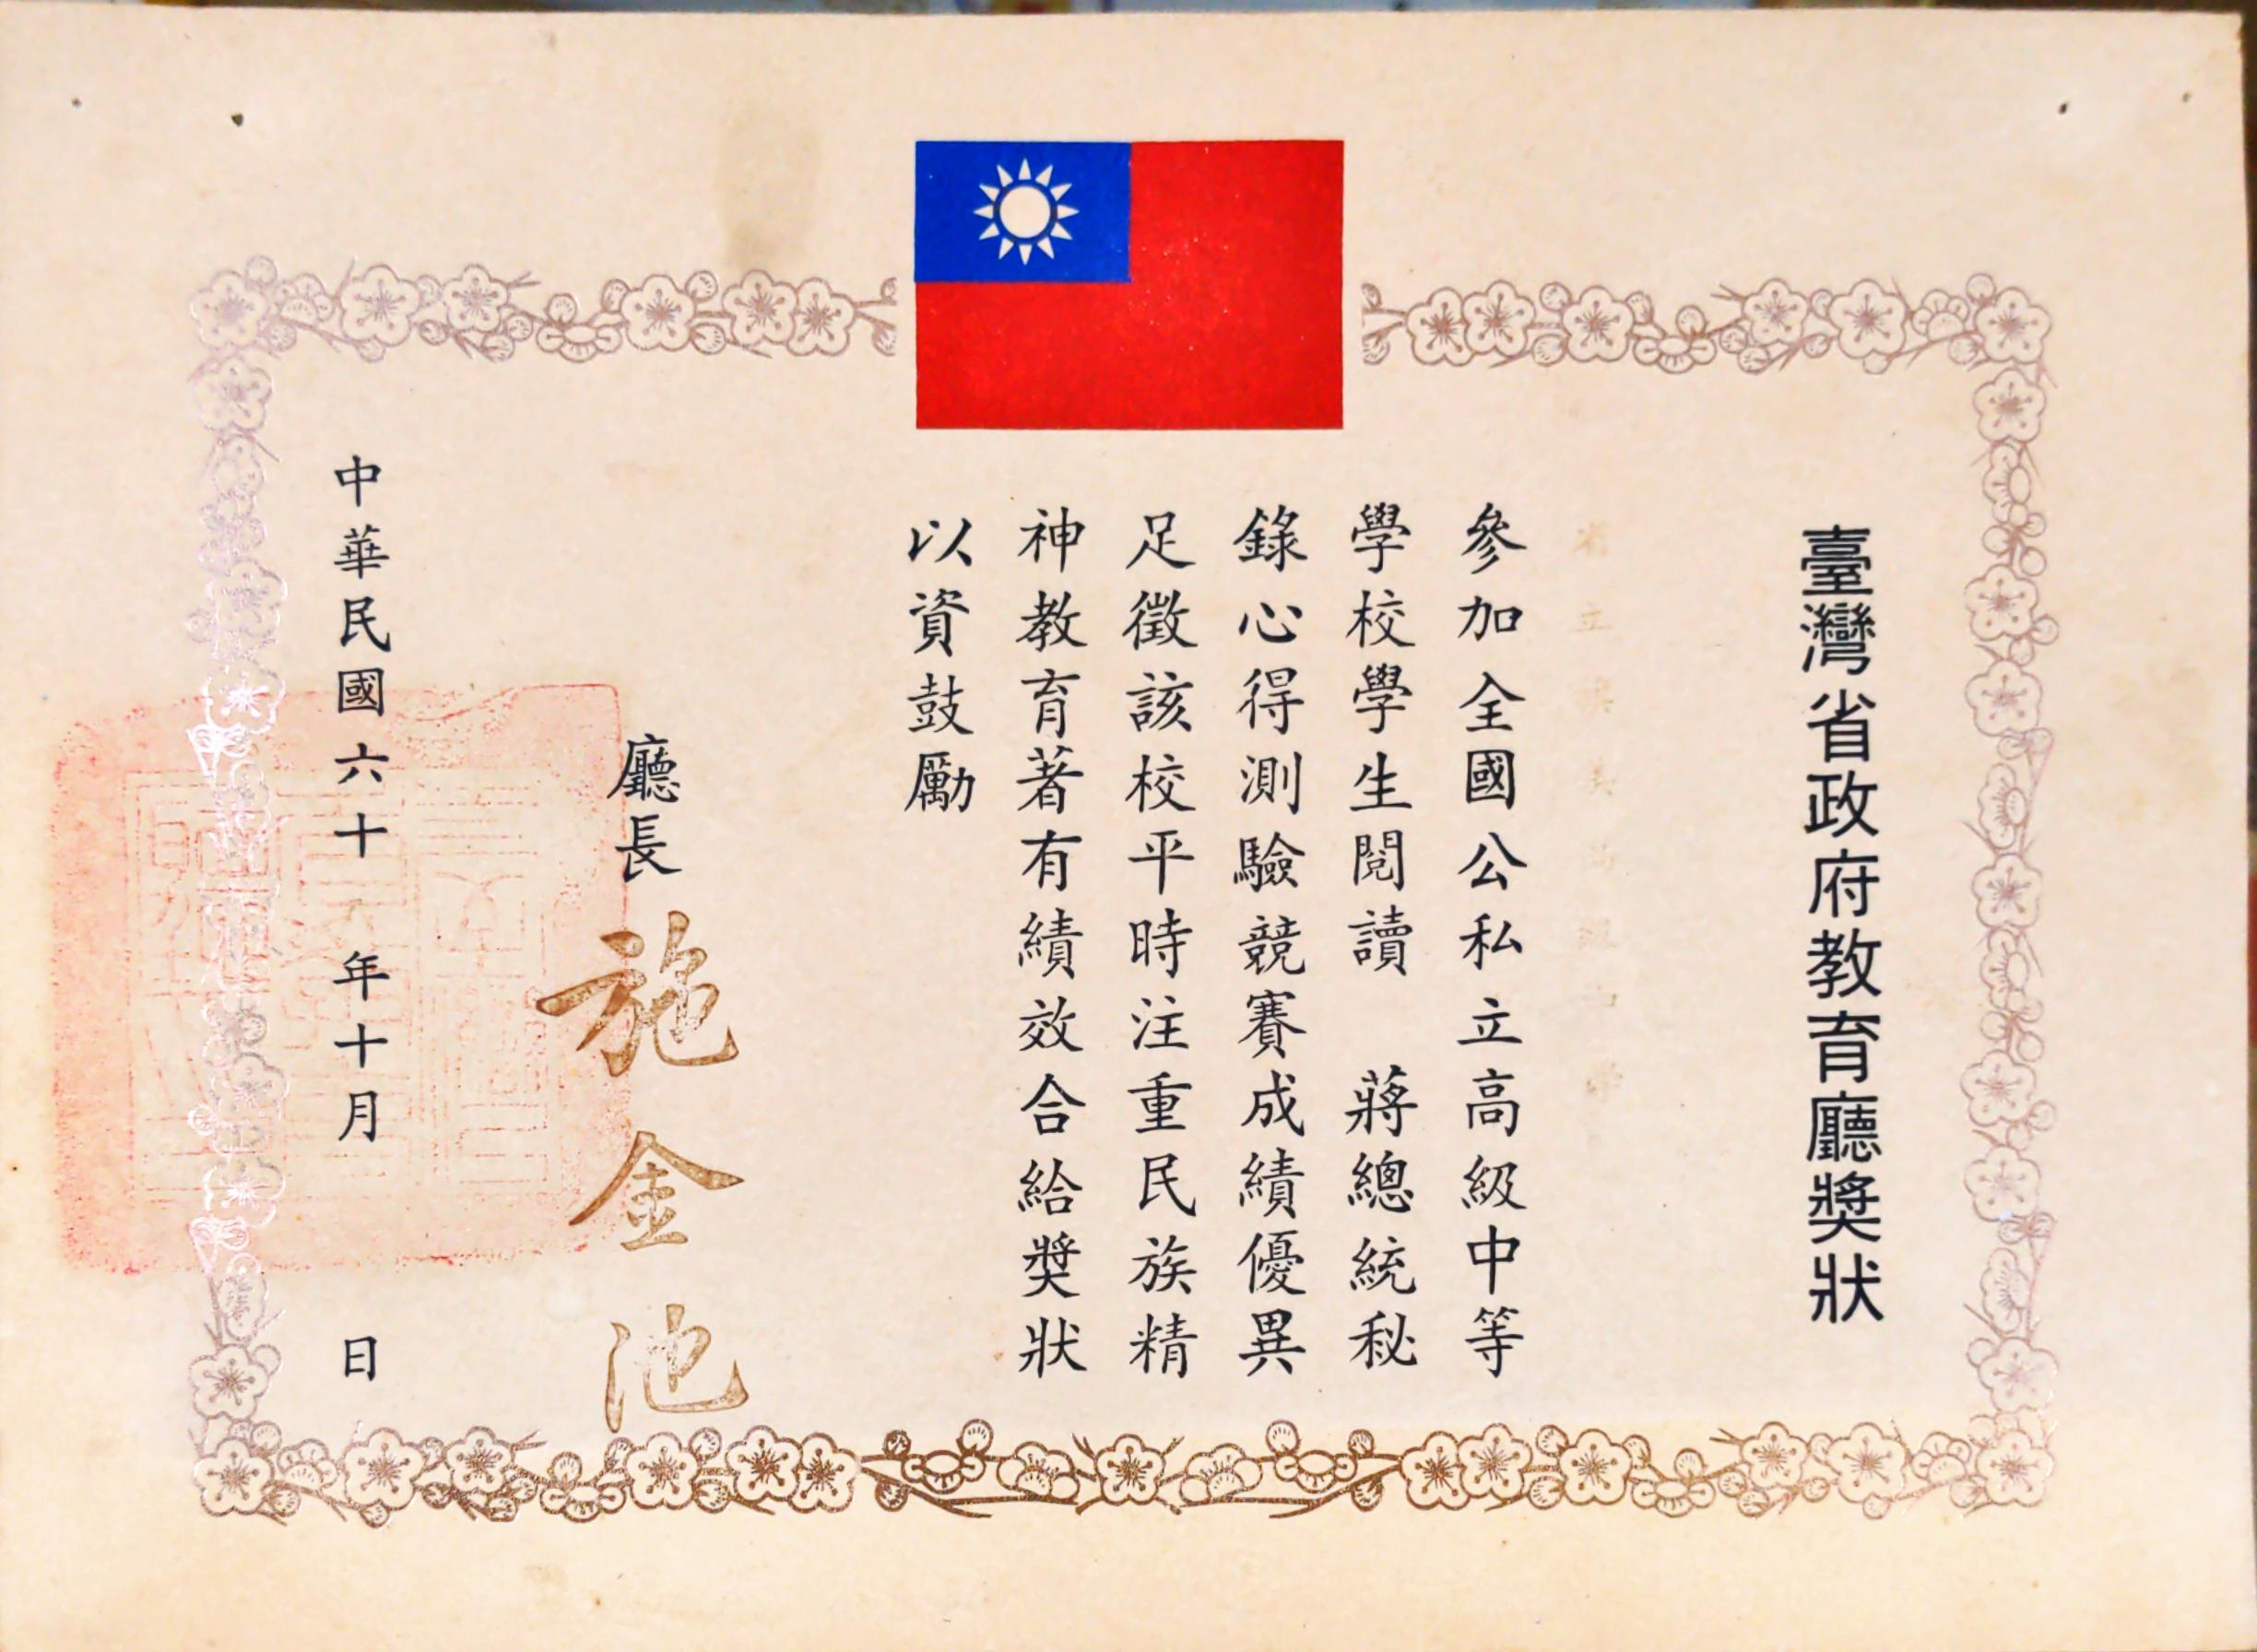 臺灣省政府教育廳獎狀
參加全國公私立高級中等
學校學生閱讀　蔣總統秘
錄心得測驗競賽成績優異
足徵該校平時注重民族精
神教育著有績效合給獎狀
以資鼓勵
廳長 施金池
中華民國六十　年十月　　日